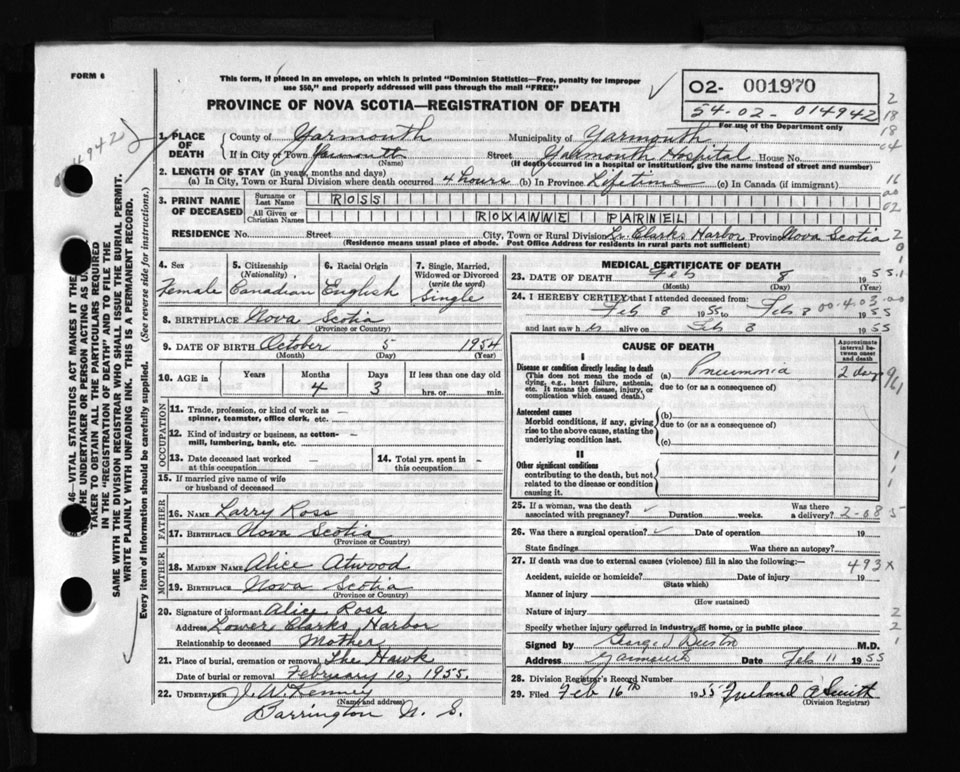 FORM 6
This form, if placed in an envelope, on which is printed "Dominion Statistics—Free, penalty for improper
use $50," and properly addressed will pass through the mail "FREE"
PROVINCE OF NOVA SCOTIA—REGISTRATION OF DEATH
02- 001970
54-02-014942
For use of the Department only
1. PLACE OF DEATH County of Yarmouth Municipality of Yarmouth
If in City or Town Yarmouth (Name) Street Yarmouth Hospital House No.
(If death occurred in a hospital or institution, give the name instead of street and number)
2. LENGTH OF STAY (in years, months and days)
(a) In City, Town or Rural Division where death occurred 4 hours (b) In Province Lifetime (c) In Canada (if immigrant)
3. PRINT NAME OF DECEASED Surname or Last Name ROSS
All Given or Christian Names ROXANNE PARNEL
RESIDENCE No. Street City, Town or Rural Division Lr. Clarks Harbor Province Nova Scotia
(Residence means usual place of abode. Post Office Address for residents in rural parts not sufficient)
4. Sex Female
5. Citizenship (Nationality) Canadian
6. Racial Origin English
7. Single, Married, Widowed or Divorced (write the word) Single
8. BIRTHPLACE Nova Scotia
(Province or Country)
9. DATE OF BIRTH October 5 1954
(Month) (Day) (Year)
10. AGE in Years Months Days If less than one day old
4 3 hrs. or min.
OCCUPATION
11. Trade, profession, or kind of work as —
spinner, teamster, office clerk, etc.
12. Kind of industry or business, as cotton- —
mill, lumbering, bank, etc.
13. Date deceased last worked —
at this occupation
14. Total yrs. spent in —
this occupation
15. If married give name of wife
or husband of deceased
FATHER
16. NAME Larry Ross
17. BIRTHPLACE Nova Scotia
(Province or Country)
MOTHER
18. MAIDEN NAME Alice Atwood
19. BIRTHPLACE Nova Scotia
(Province or Country)
20. Signature of informant Alice Ross
Address Lower Clarks Harbor
Relationship to deceased Mother
21. Place of burial, cremation or removal The Hawk
Date of burial or removal February 10, 1955.
22. UNDERTAKER J. W. Kenney
(Name and address)
Barrington N. S.
MEDICAL CERTIFICATE OF DEATH
23. DATE OF DEATH Feb 8 1955
(Month) (Day) (Year)
24. I HEREBY CERTIFY that I attended deceased from:
Feb 8 1955 to Feb 8 1955
and last saw h alive on Feb 8 1955
CAUSE OF DEATH
Approximate interval between onset and death
I
Disease or condition directly leading to death
(This does not mean the mode of
dying, e.g., heart failure, asthenia,
etc. It means the disease, injury, or
complication which caused death.)
(a) Pneumonia 2 days
due to (or as a consequence of)
Antecedent causes
Morbid conditions, if any, giving
rise to the above cause, stating the
underlying condition last.
(b)
due to (or as a consequence of)
(c)
II
Other significant conditions
contributing to the death, but not
related to the disease or condition
causing it.
25. If a woman, was the death
associated with pregnancy? Duration weeks. Was there a delivery?
2-08
26. Was there a surgical operation? Date of operation 19
State findings Was there an autopsy?
27. If death was due to external causes (violence) fill in also the following:
493X
Accident, suicide or homicide? Date of injury 19
(State which)
Manner of injury
(How sustained)
Nature of injury
Specify whether injury occurred in industry, in home, or in public place
Signed by M.D.
Address Yarmouth Date Feb 11 1955
28. Division Registrar's Record Number
29. Filed Feb 16th 1955 Smith
(Division Registrar)
46—VITAL STATISTICS ACT MAKES IT THE
THE UNDERTAKER OR PERSON ACTING AS
TAKER TO OBTAIN ALL THE PARTICULARS REQUIRED
IN THE "REGISTRATION OF DEATH" AND TO FILE THE
SAME WITH THE DIVISION REGISTRAR WHO SHALL ISSUE THE BURIAL PERMIT.
WRITE PLAINLY WITH UNFADING INK. THIS IS A PERMANENT RECORD.
Every item of information should be carefully supplied. (See reverse side for instructions.)